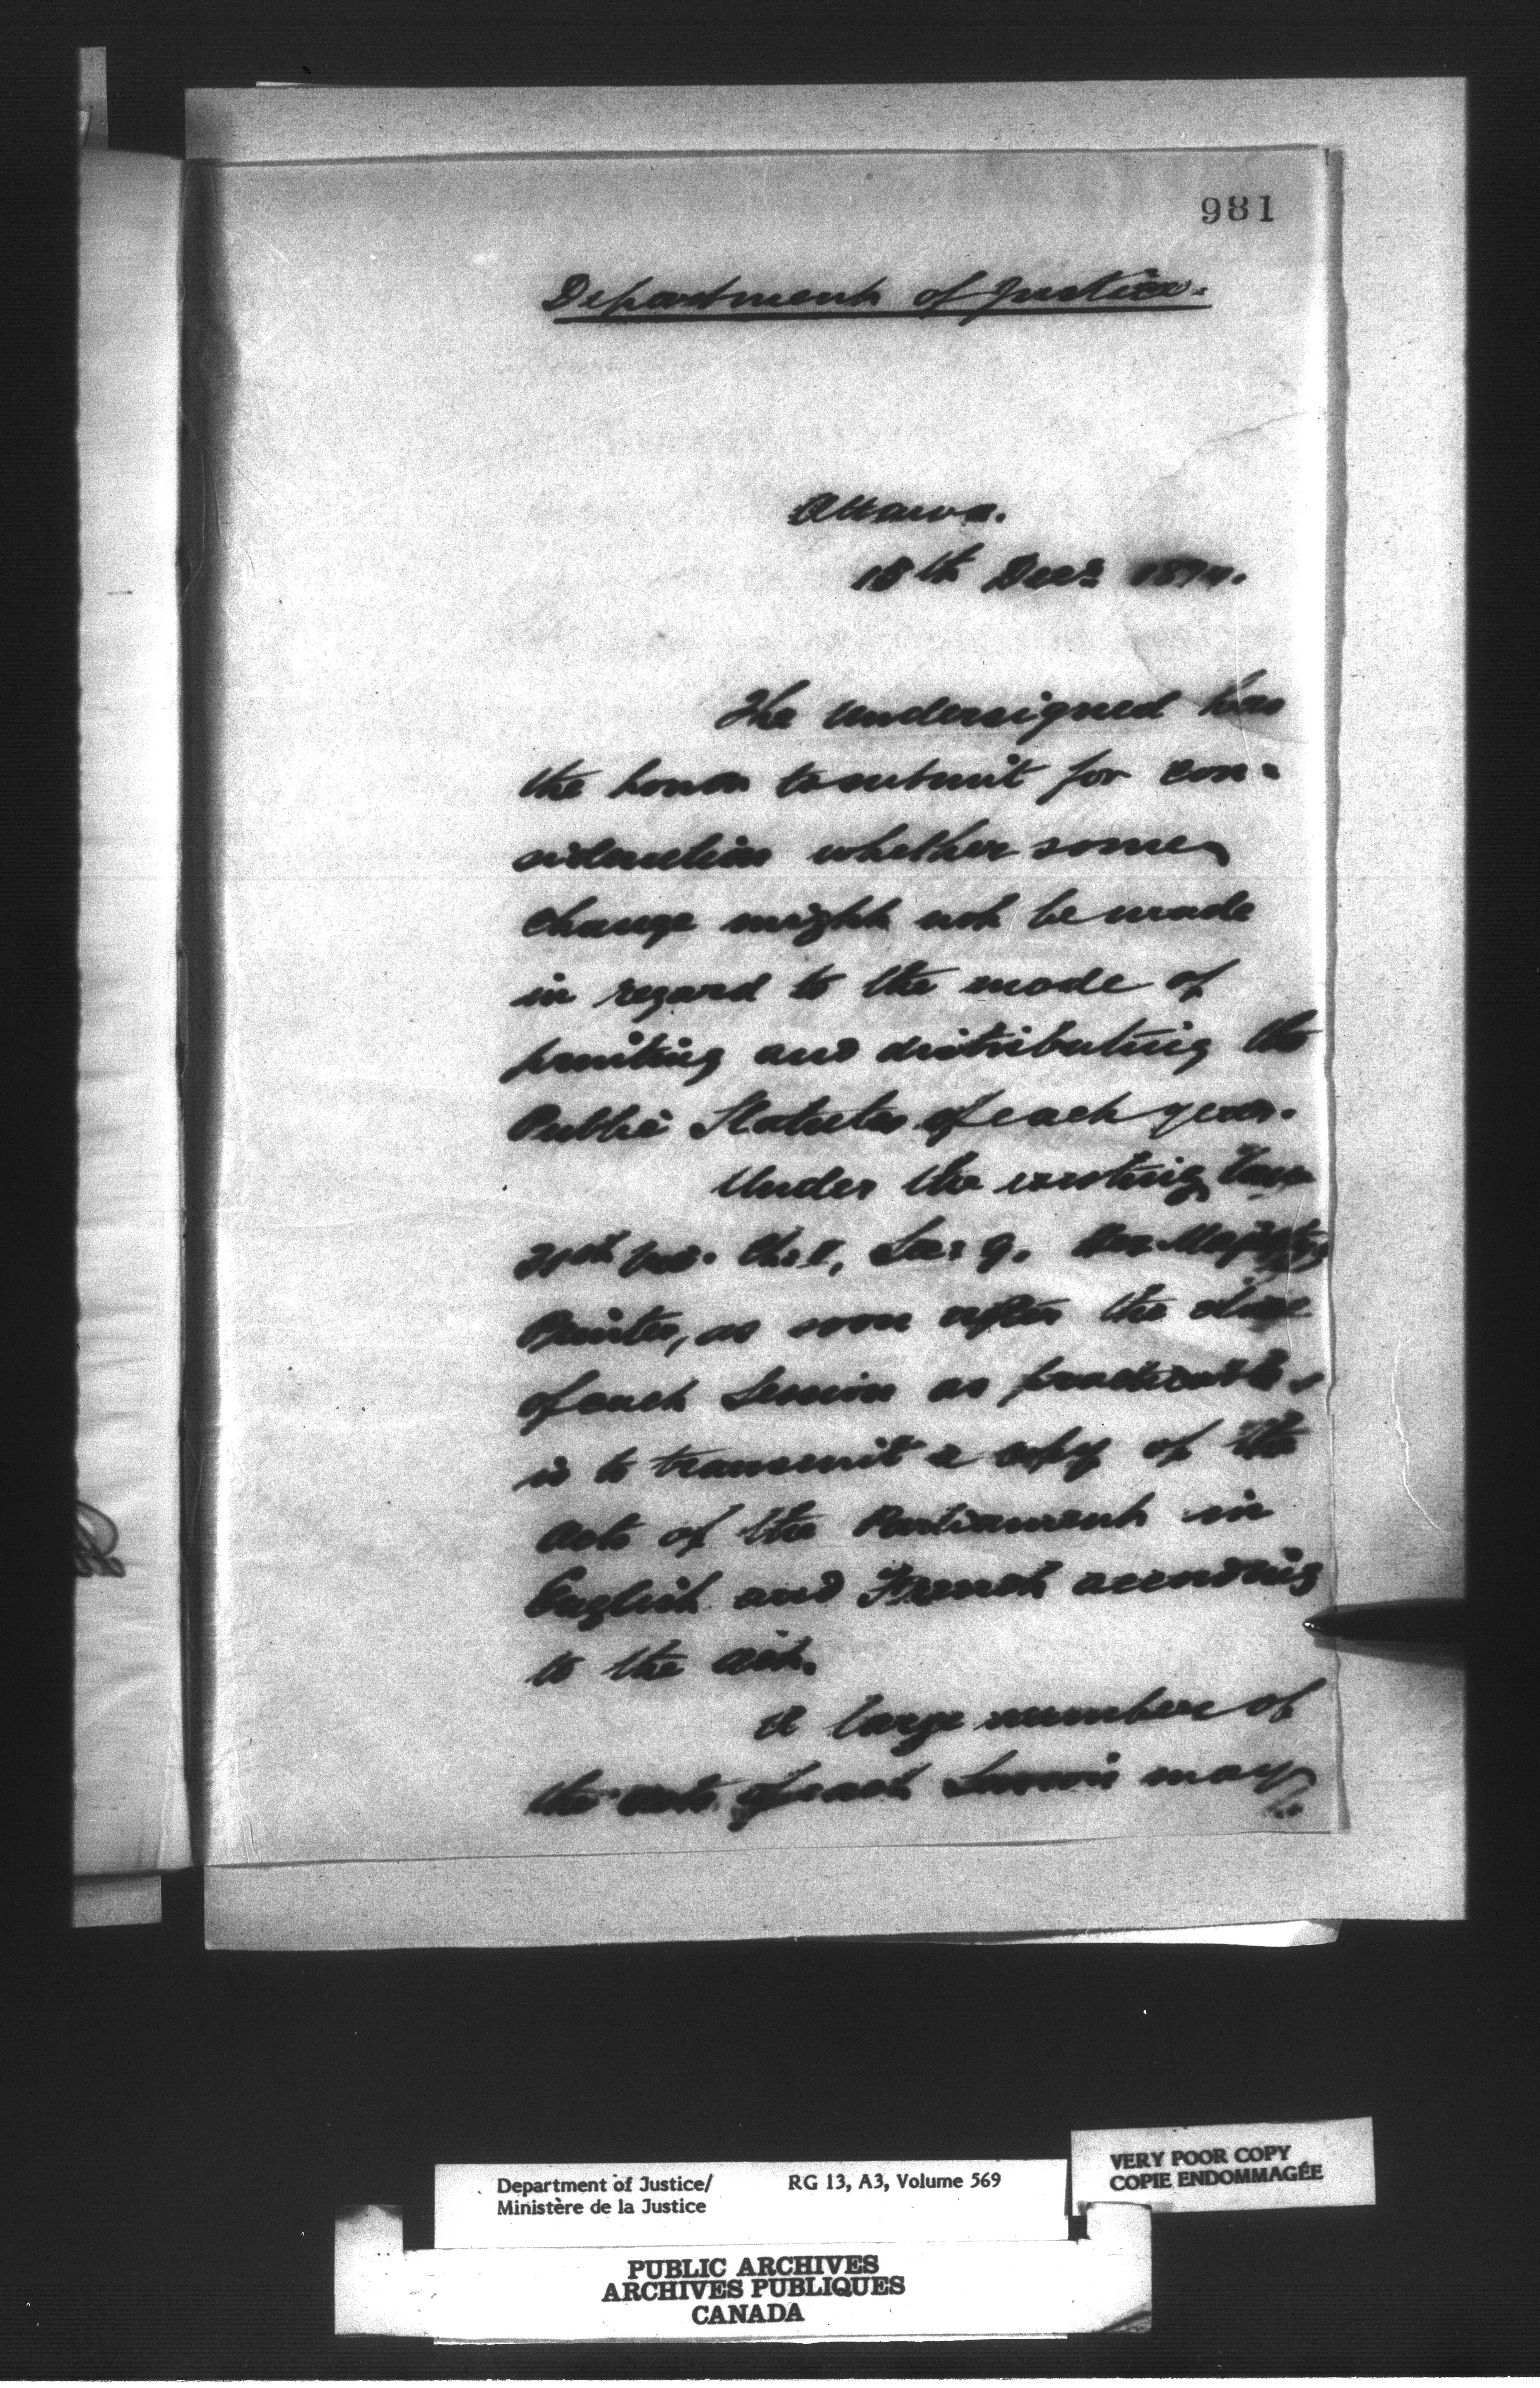 981
Department of Justice.
Ottawa.
18th Decr 1874.
The undersigned has
the honor to submit for con=
sideration whether some
change might not be made
in regard to the mode of
printing and distributing the
Public Statutes of each year.
Under the existing law
31st Vic. Ch. 1, Sec: 9. Her Majesty's
Printer, as soon after the close
of each Session as practicable
is to transmit a copy of the
Acts of the Parliament in
English and French according
to the Act.
A large number of
the Acts of each Session may
Department of Justice/
Ministère de la Justice
RG 13, A3, Volume 569
VERY POOR COPY
COPIE ENDOMMAGÉE
PUBLIC ARCHIVES
ARCHIVES PUBLIQUES
CANADA